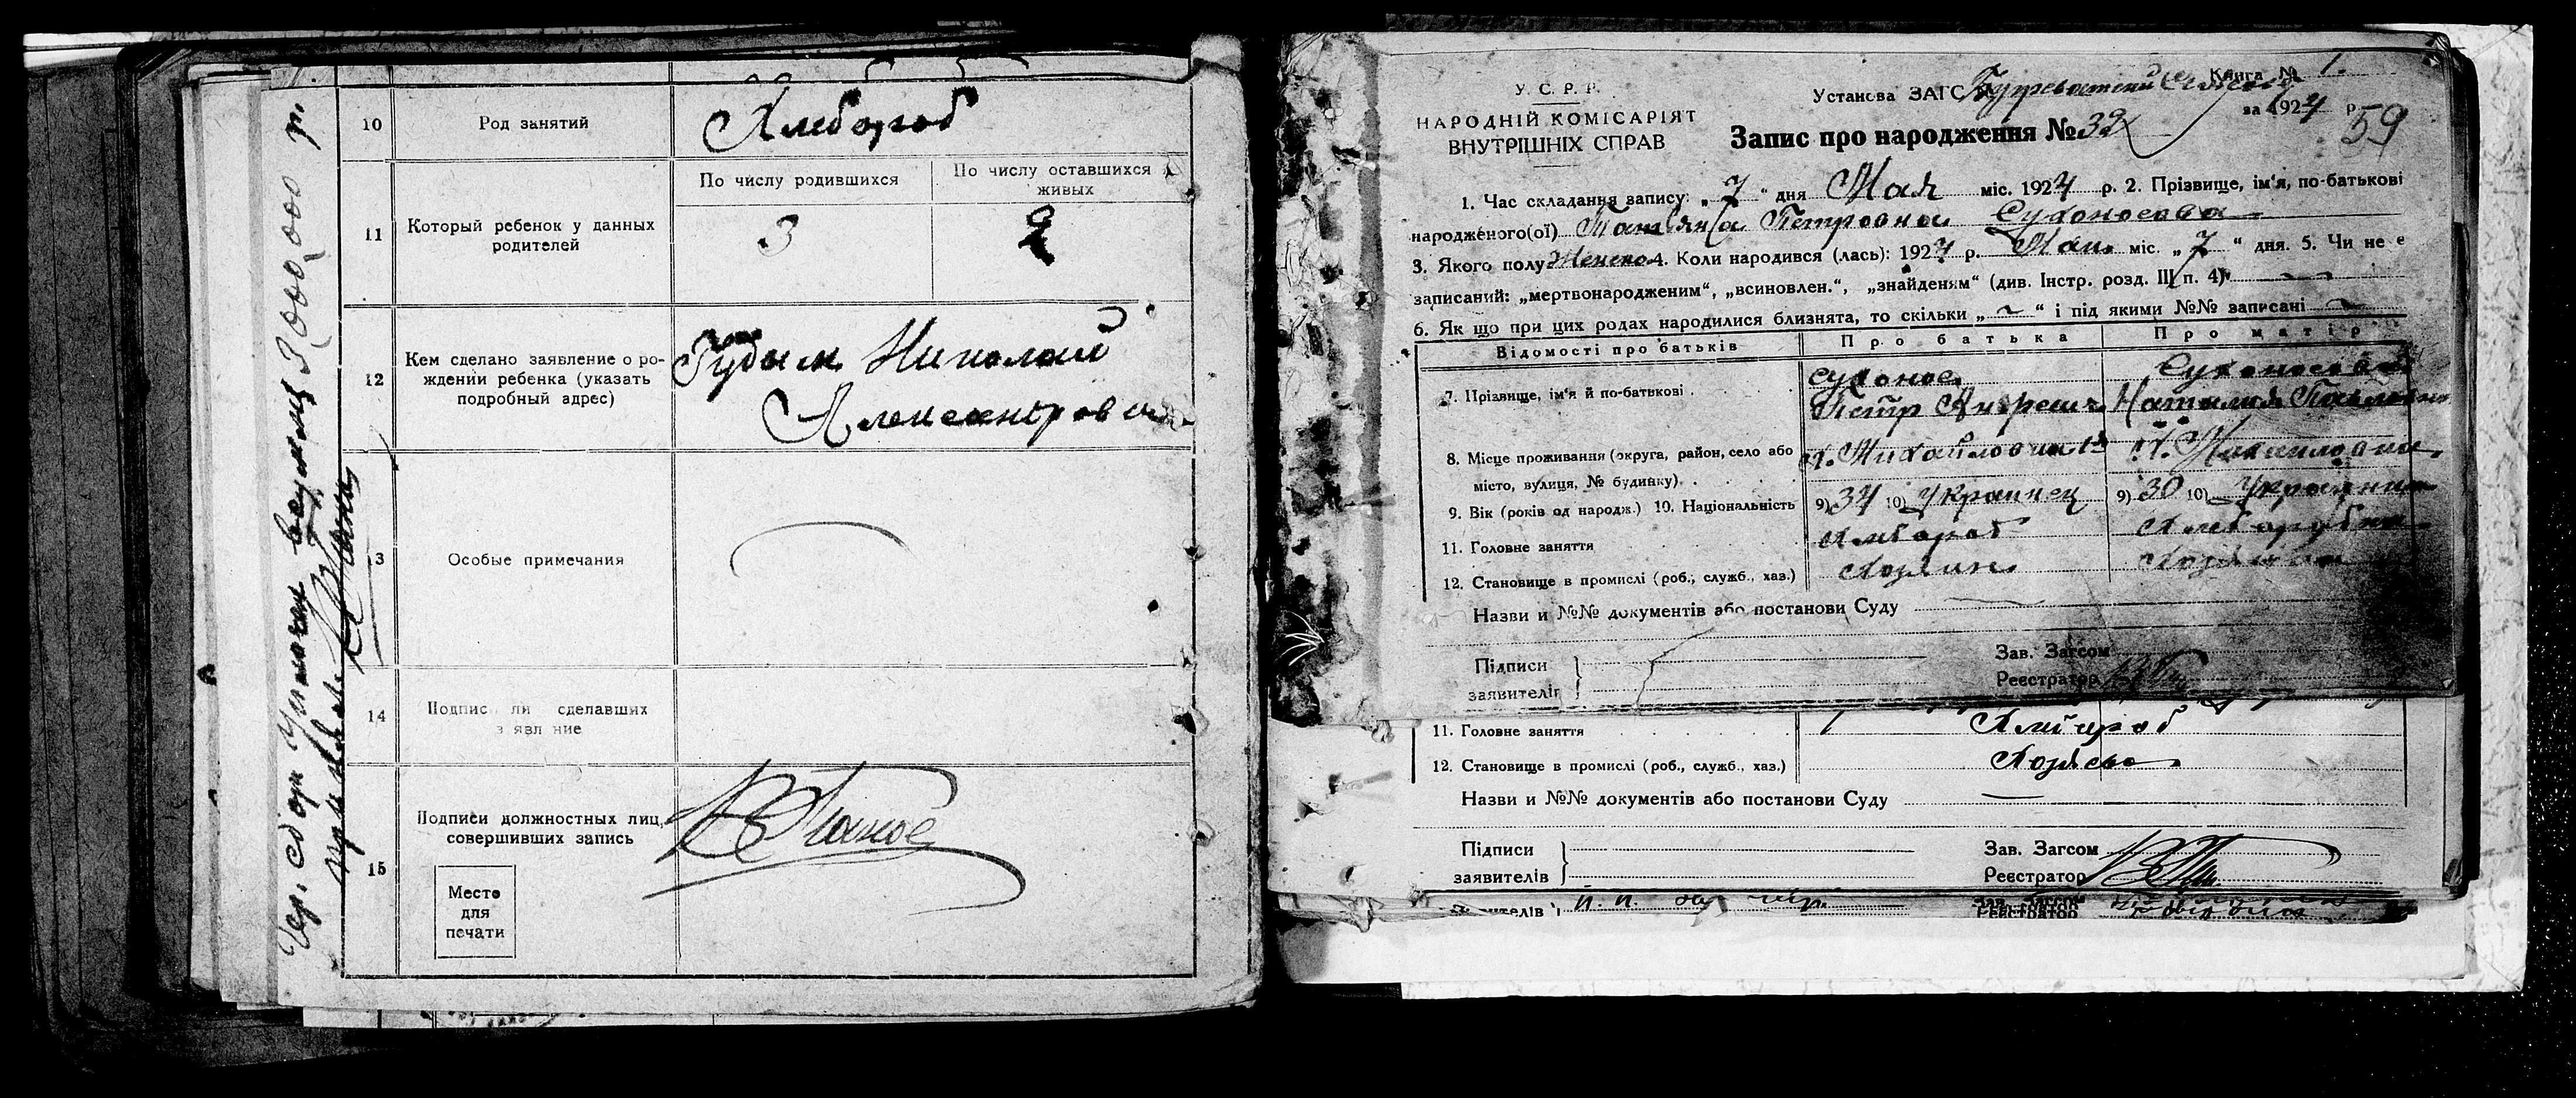 10 Род занятий Хлебороб
По числу родившихся По числу оставшихся живых
11 Который ребенок у данных родителей 3 2
12 Кем сделано заявление о рождении ребенка (указать подробный адрес) Губым Николай
Александрович
13 Особые примечания
14 Подпис ли сделавших
з явл ние
15 Подписи должностных лиц, совершивших запись
Место
для
печати
Гер. сбор Уплочен
3000,000 р.
У. С. Р. Р.
НАРОДНІЙ КОМІСАРІЯТ
ВНУТРІШНІХ СПРАВ
Книга № 1.
Установа ЗАГС
за 1924 р.
59
Запис про народження № 32
1. Час складання запису: „7“ дня Мая міс. 1924 р. 2. Прізвище, ім‘я, по-батькові
народженого(ої) Татьяна Петровна Сухоносова
3. Якого полу Женско 4. Коли народився (лась): 1924 р. Мая міс. „7“ дня. 5. Чи не є
записаний: „мертвонародженим“, „всиновлен.“, „знайденям“ (див. Інстр. розд. III п. 4)
6. Як що при цих родах народилися близнята, то скільки „ ~ “ і під якими №№ записані
Відомості про батьків Про батька Про матір
7. Прізвище, ім‘я й по-батькові Сухонос Сухоносова
Петр Андреич Наталия Павловна
8. Місце проживання (округа, район, село або х. Михайловка х. Михайловка
місто, вулиця, № будинку)
9. Вік (років од народж.) 10. Національність 9) 34 10) Украинец 9) 30 10) Украинка
11. Головне заняття Хлебороб Хлеборубка
12. Становище в промислі (роб., служб., хаз.) Хозяин Хозяйка
Назви и №№ документів або постанови Суду
Підписи
заявителів
Зав. Загсом
Реєстратор
11. Головне заняття Хлебороб
12. Становище в промислі (роб., служб., хаз.)
Назви и №№ документів або постанови Суду
Підписи
заявителів
Зав. Загсом
Реєстратор
Зав. Загсом
Реєстратор